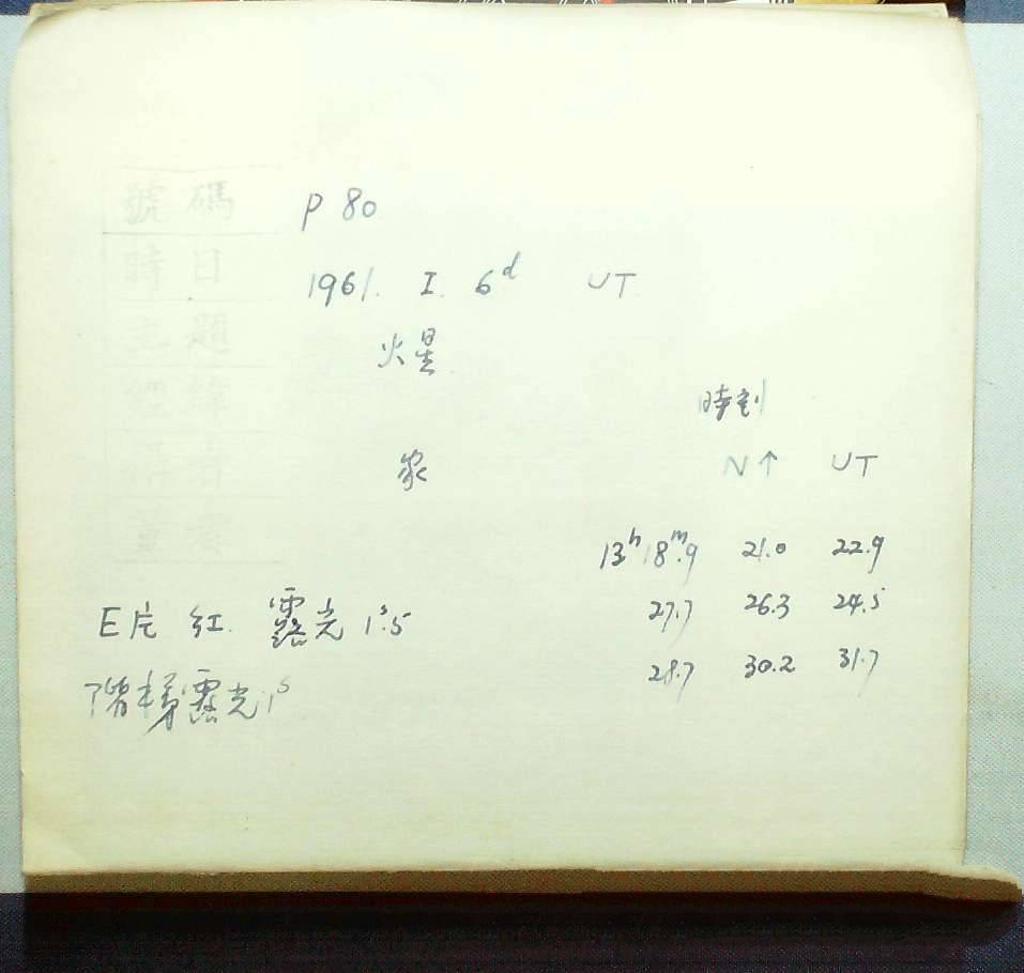 號碼
時日
主題
經緯
P 80
1961. I. 6ᵈ UT
火星
家
時刻
N↑ UT
13ʰ18ᵐ.9 21.0 22.9
27.7 26.3 24.5
28.7 30.2 31.7
E片 紅. 露光 1ˢ.5
階梯露光 1ˢ